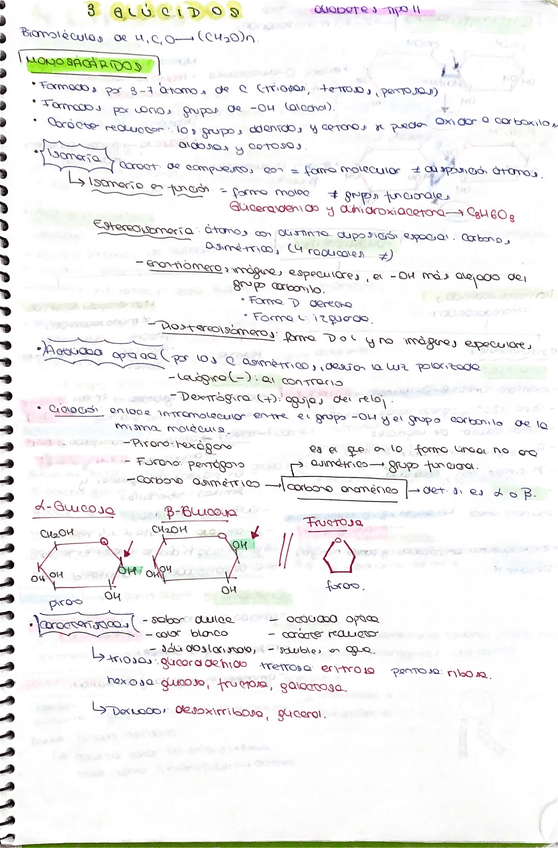 3 GLÚCIDOS diabetes tipo II
Biomoléculas de H, C, O → (CH2O)n.
MONOSACÁRIDOS
• Formados por 3-7 átomos de C (triosas, tetrosas, pentosas)
• Formados por varios grupos de -OH (alcohol).
• Carácter reductor: los grupos aldehídos y cetonas se pueden oxidar a carboxilos
aldosas y cetosas.
• Isomería (caract. de compuestos con = forma molecular ≠ disposición átomos.
↳ Isomería en función = forma molec ≠ grupos funcionales
Gliceraldehído y dihidroxiacetona → C3H6O3
Estereoisomería: átomos con distinta disposición espacial. Carbonos
asimétricos (4 radicales ≠)
- enantiómeros: imágenes especulares, el -OH más alejado del
grupo carbonilo.
• Forma D derecha
• Forma L izquierda.
- Diastereoisómeros: forma D o L y no imágenes especulares.
• Actividad óptica (por los C asimétricos, desvían la luz polarizada
- Levógira (-): al contrario
- Dextrógira (+): agujas del reloj.
• Ciclación: enlace intramolecular entre el grupo -OH y el grupo carbonilo de la
misma molécula.
- Pirano: hexágono es el que en la forma lineal no era
- Furano: pentágono asimétrico → grupo funcional.
- Carbono asimétrico → carbono anomérico → det. si es α o β.
α-Glucosa β-Glucosa Fructosa
CH2OH CH2OH
O O OH
OH OH OH OH OH
OH OH
pirano furano.
• Características (- sabor dulce - actividad óptica
- color blanco - carácter reductor
- sólidos cristalinos - solubles en agua.
↳ triosas: gliceraldehído tretrosa eritrosa pentosa ribosa.
hexosa glucosa, fructosa, galactosa.
↳ Derivados desoxirribosa, glicerol.